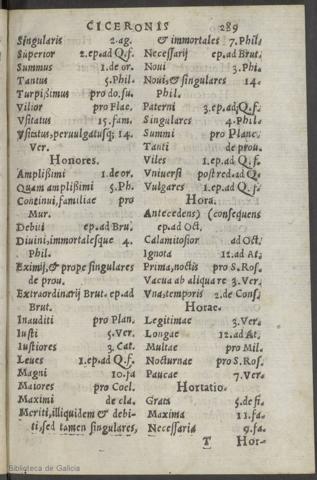 CICERONIS 289
Singularis 2.ag.
Superior 2.ep.ad Q.f.
Summus 1.de or.
Tantus 5.Phil.
Turpißimus pro do.su.
Vilior pro Flac.
Vsitatus 15.fam.
Vsitatus, peruulgatusq; 14.
Ver.
Honores.
Amplißimi 1.de or.
Quam amplißimi 5.Ph.
Continui, familiae pro
Mur.
Debiti ep.ad Bru.
Diuini, immortalesque 4.
Phil.
Eximij, & prope singulares
de prou.
Extraordinarij Brut. ep.ad
Brut.
Inauditi pro Plan.
Iusti 5.Ver.
Iustiores 3.Cat.
Leues 1.ep.ad Q.f.
Magni 10.fa
Maiores pro Coel.
Maximi de cla.
Meriti, illiquidem & debi-
ti, sed tamen singulares,
& immortales 7.Phil.
Necessarij ep.ad Brut.
Noui 3.Phi.
Noui, & singulares 14.
Phil.
Paterni 3.ep.ad Q.f.
Singulares 4.Phil.
Summi pro Planc.
Tanti de prou.
Viles 1.ep.ad Q.f.
Vniuersi post red.ad Q.
Vulgares 1.ep.ad Q.f.
Hora.
Antecedens) (consequens
ep.ad Oct.
Calamitosior ad Oct.
Ignota 12.ad At.
Prima, noctis pro S.Ros.
Vacua ab aliqua re 3.Ver.
Vna, temporis 2.de Cons.
Horae.
Legitimae 3.Ver.
Longae 12.ad At.
Multae pro Mil.
Nocturnae pro S.Ros.
Paucae 7.Ver.
Hortatio.
Grata 5.de fi.
Maxima 11.fa.
Necessaria 9.fa.
T Hor-
Biblioteca de Galicia